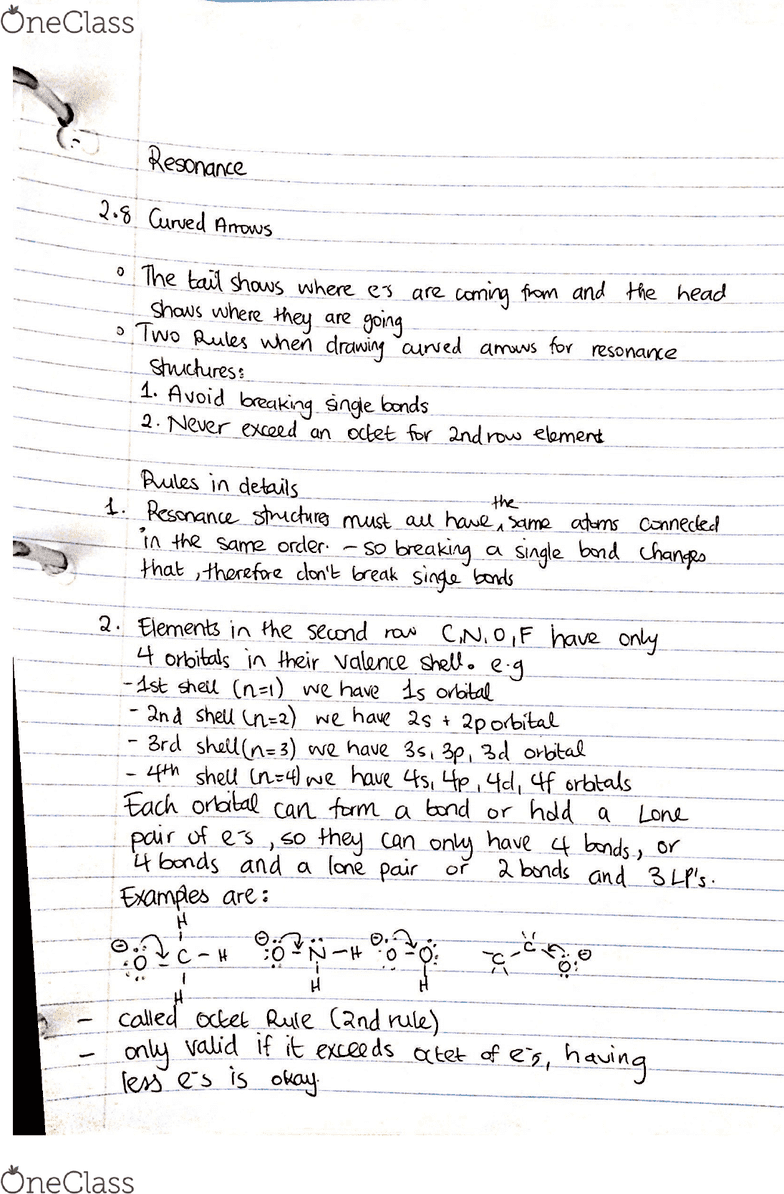 OneClass
Resonance
2.8 Curved Arrows
The tail shows where e-s are coming from and the head
shows where they are going
Two Rules when drawing curved arrows for resonance
structures:
1. Avoid breaking single bonds
2. Never exceed an octet for 2nd row element
Rules in details
1. Resonance structures must all have the same atoms connected
in the same order. - so breaking a single bond changes
that, therefore don't break single bonds
2. Elements in the second row C,N,O,F have only
4 orbitals in their valence shell. e.g
- 1st shell (n=1) we have 1s orbital
- 2nd shell (n=2) we have 2s + 2p orbital
- 3rd shell (n=3) we have 3s, 3p, 3d orbital
- 4th shell (n=4) we have 4s, 4p, 4d, 4f orbitals
Each orbital can form a bond or hold a Lone
pair of e-s, so they can only have 4 bonds, or
4 bonds and a lone pair or 2 bonds and 3 LP's.
Examples are:
H
O C - H O N - H O - O C - C O
H H H
- called octet Rule (2nd rule)
- only valid if it exceeds octet of e-s, having
less e-s is okay.
OneClass